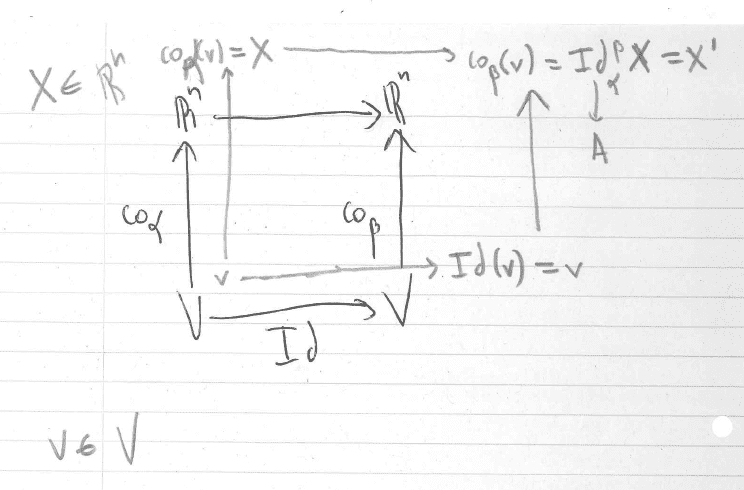 co_α(v) = X → co_β(v) = Id_α^β X = X'
X ∈ ℝⁿ
ℝⁿ → ℝⁿ
↓ A
co_α co_β
v → Id(v) = v
V → V
Id
v ∈ V